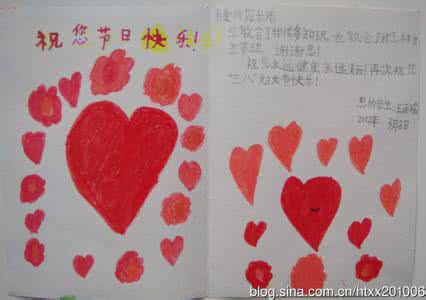 祝您节日快乐!
您教会了我很多知识,也教会了我怎样
谢谢您!
祝您永远健康永远美丽!再次祝您
三八妇女节快乐!
您的学生:王
2012年 3月8日
blog.sina.com.cn/htxx201006